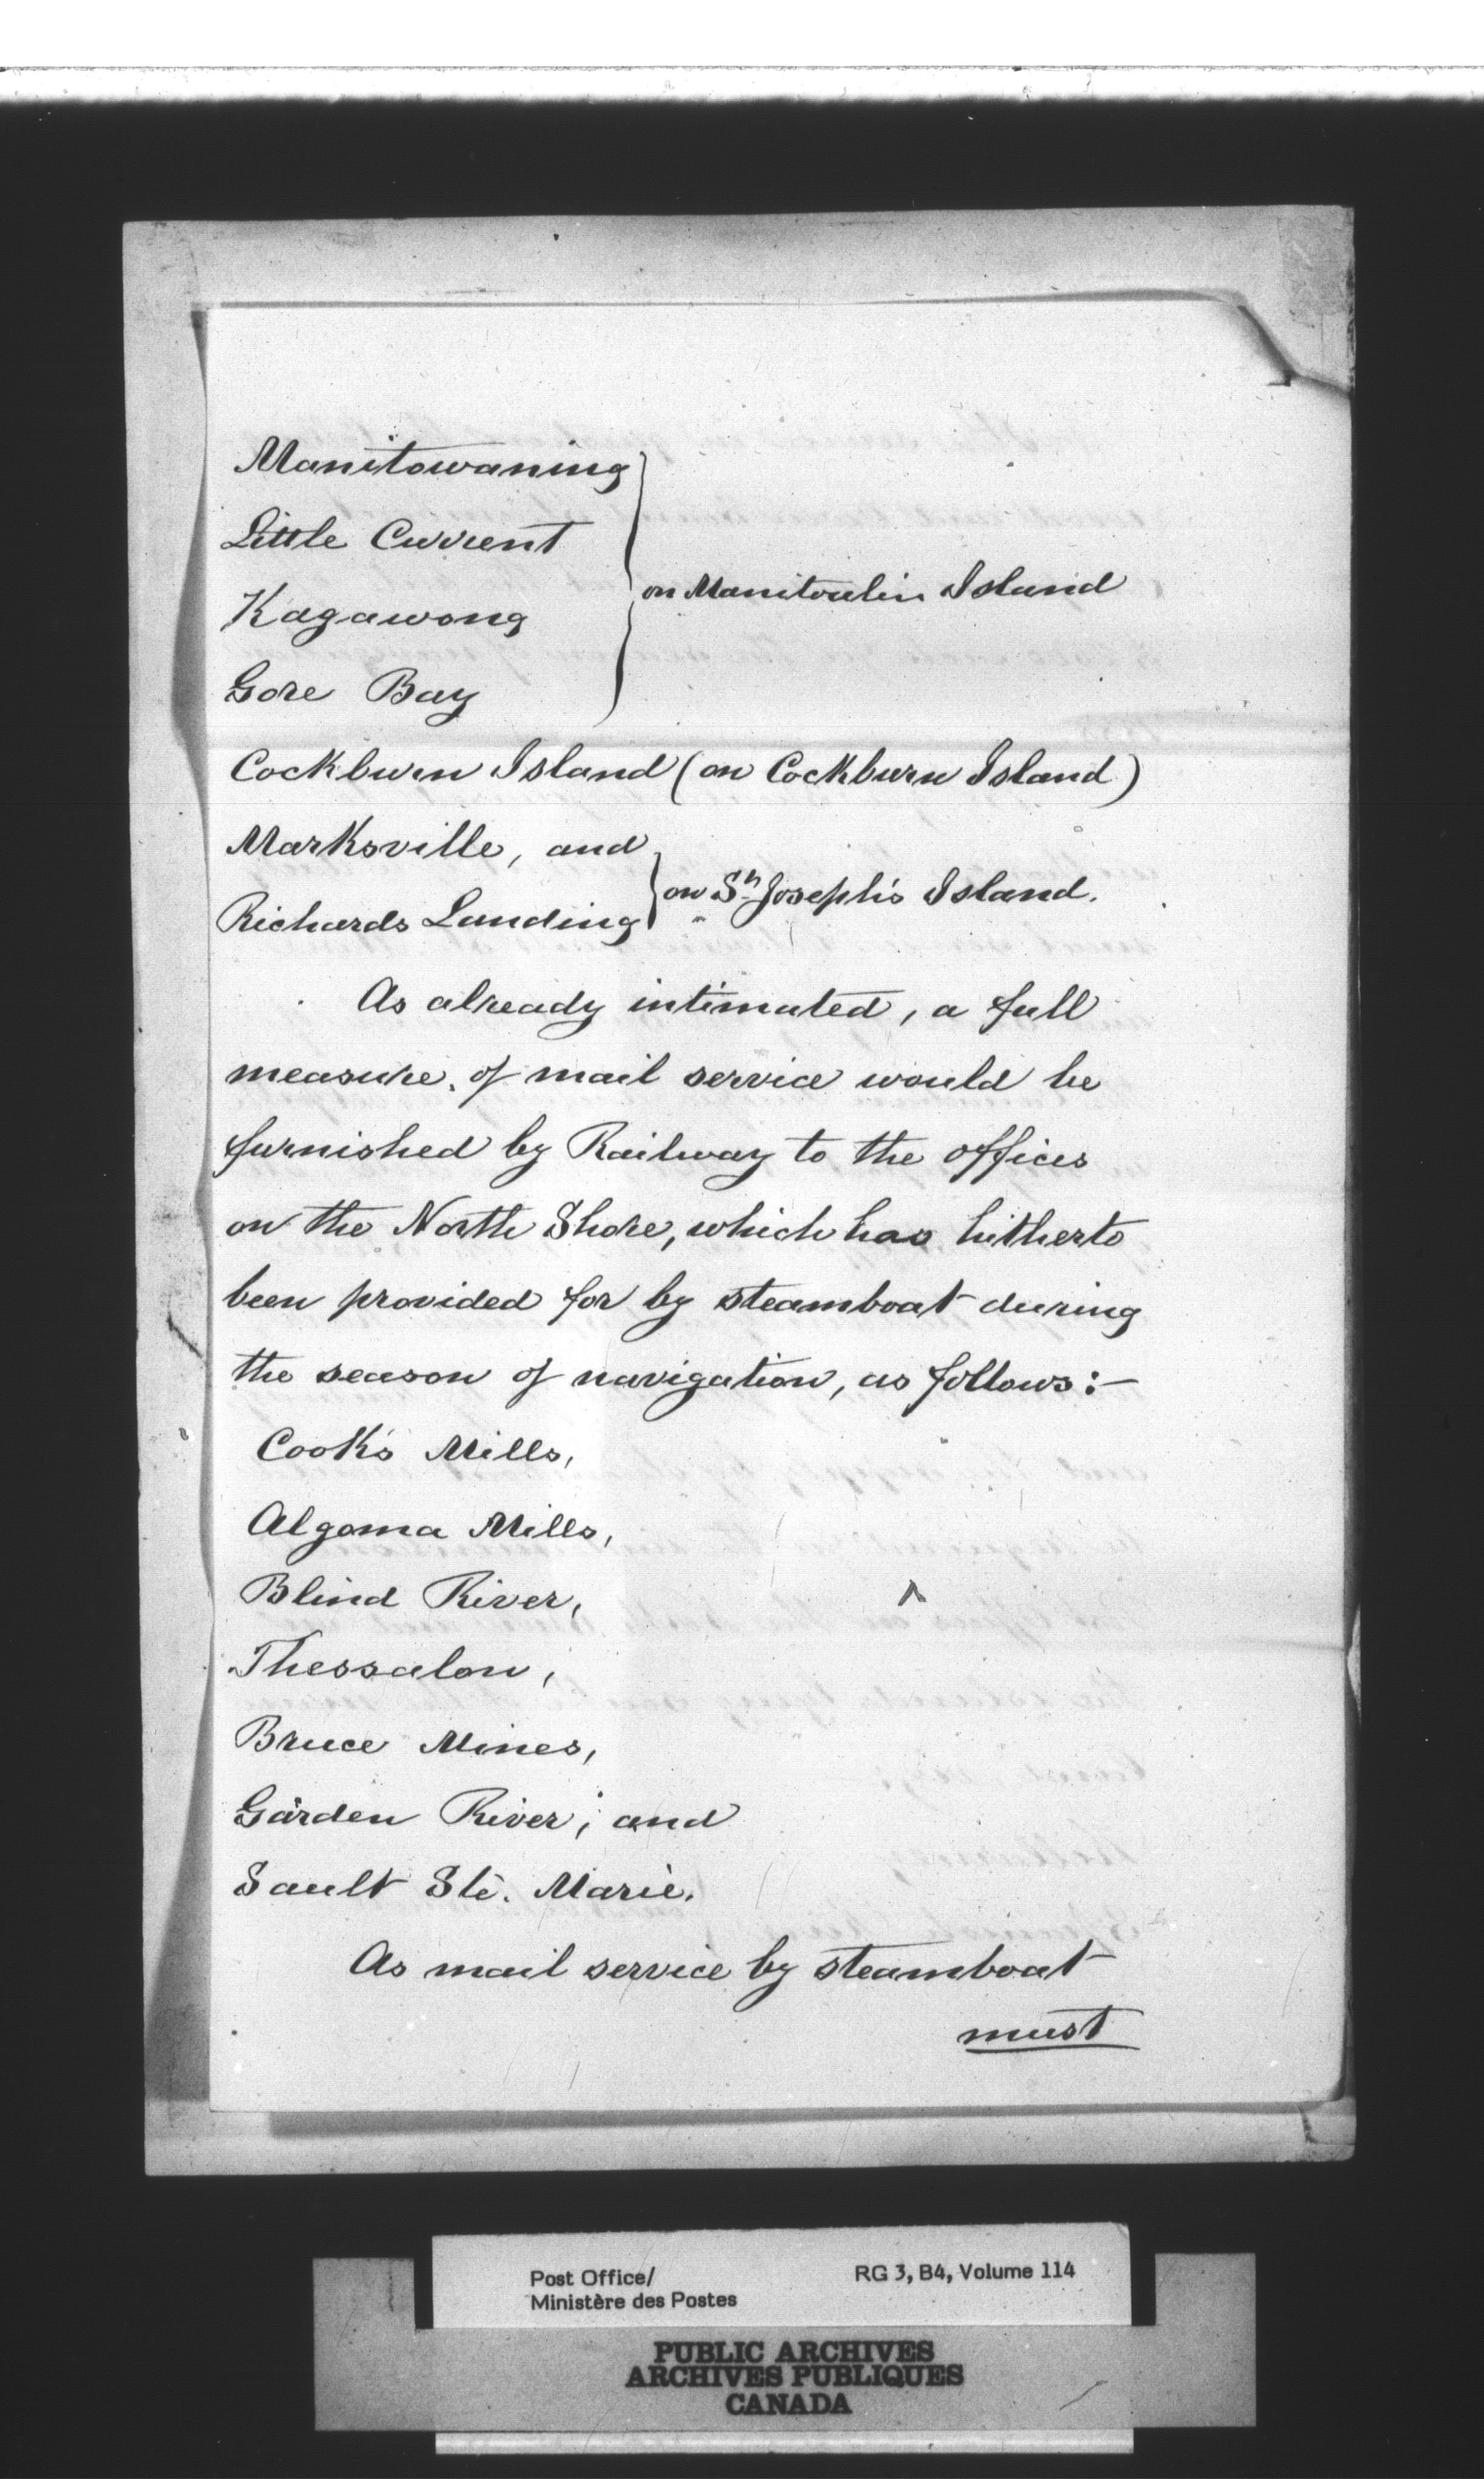 Manitowaning
Little Current
on Manitoulin Island
Kagawong
Gore Bay
Cockburn Island (on Cockburn Island)
Marksville, and
on St. Joseph's Island.
Richards Landing
As already intimated, a full
measure of mail service would be
furnished by Railway to the offices
on the North Shore, which has hitherto
been provided for by steamboat during
the season of navigation, as follows:—
Cook's Mills,
Algoma Mills,
Blind River,
Thessalon,
Bruce Mines,
Garden River, and
Sault Ste. Marie.
As mail service by steamboat
must
Post Office/
Ministère des Postes
RG 3, B4, Volume 114
PUBLIC ARCHIVES
ARCHIVES PUBLIQUES
CANADA